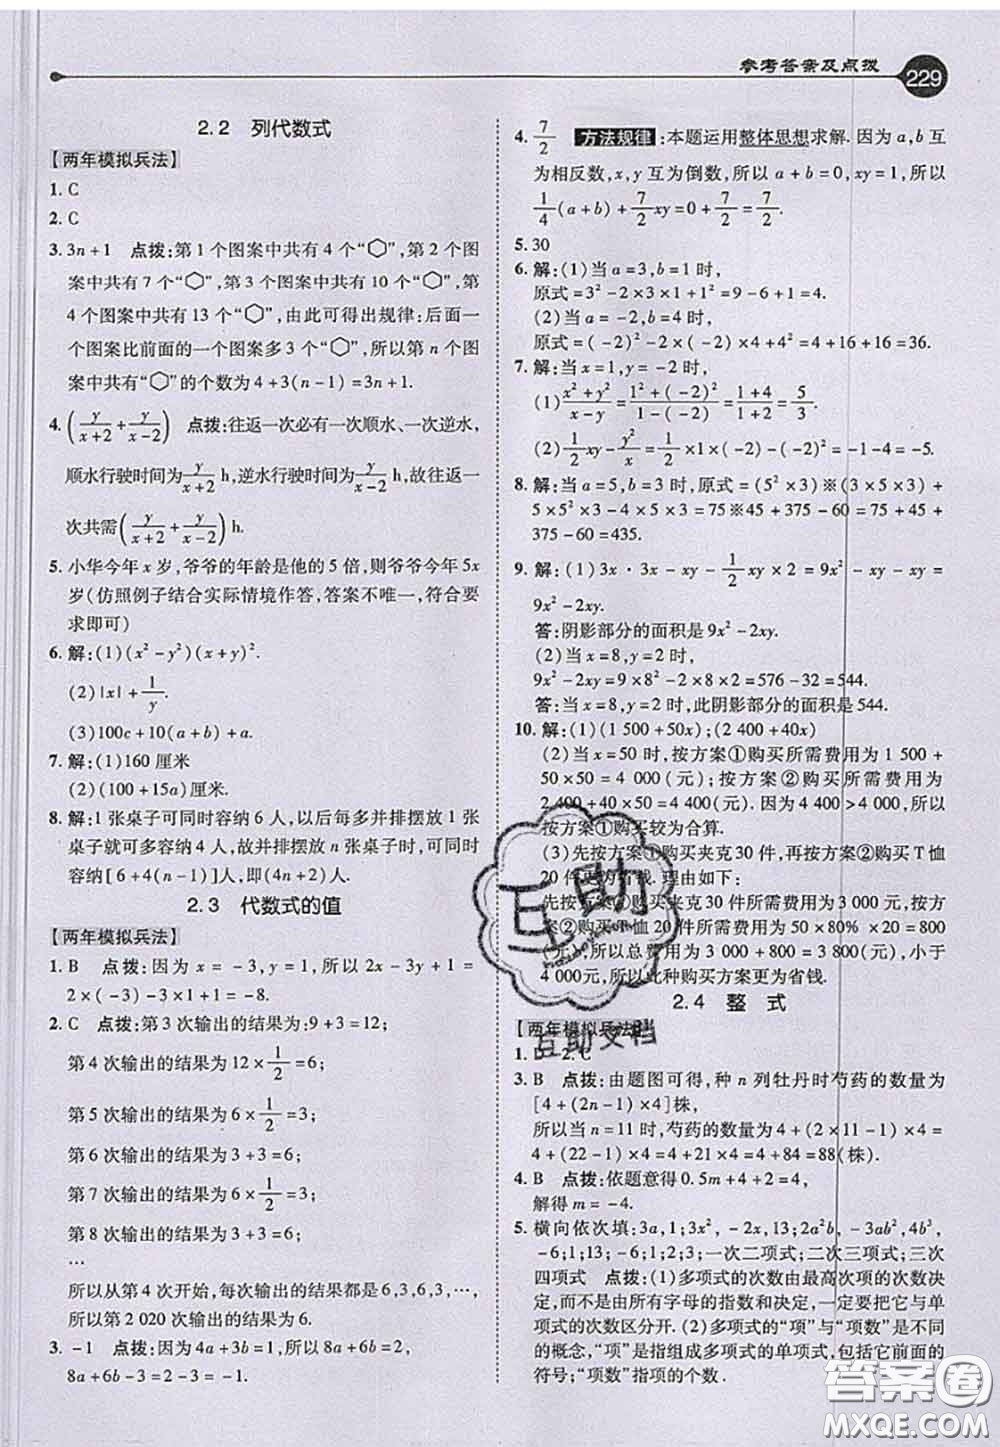 参考答案及点拨 229
2.2 列代数式
【两年模拟兵法】
1. C
2. C
3. 3n+1 点拨:第 1 个图案中共有 4 个“⬡”,第 2 个图
案中共有 7 个“⬡”,第 3 个图案中共有 10 个“⬡”,第
4 个图案中共有 13 个“⬡”,由此可得出规律:后面一
个图案比前面的一个图案多 3 个“⬡”,所以第 n 个图
案中共有“⬡”的个数为 4+3(n-1)=3n+1.
4. (y/(x+2)+y/(x-2)) 点拨:往返一次必有一次顺水,一次逆水,
顺水行驶时间为 y/(x+2) h,逆水行驶时间为 y/(x-2) h,故往返一
次共需(y/(x+2)+y/(x-2)) h.
5. 小华今年 x 岁,爷爷的年龄是他的 5 倍,则爷爷今年 5x
岁(仿照例子结合实际情境作答,答案不唯一,符合要
求即可)
6. 解:(1)(x²-y²)(x+y)².
(2)|x|+1/y.
(3)100c+10(a+b)+a.
7. 解:(1)160 厘米
(2)(100+15a)厘米.
8. 解:1 张桌子可同时容纳 6 人,以后每并排摆放 1 张
桌子就可多容纳 4 人,故并排摆放 n 张桌子时,可同时
容纳[6+4(n-1)]人,即(4n+2)人.
2.3 代数式的值
【两年模拟兵法】
1. B 点拨:因为 x=-3,y=1,所以 2x-3y+1=
2×(-3)-3×1+1=-8.
2. C 点拨:第 3 次输出的结果为:9+3=12;
第 4 次输出的结果为 12×1/2=6;
第 5 次输出的结果为 6×1/2=3;
第 6 次输出的结果为 3+3=6;
第 7 次输出的结果为 6×1/2=3;
第 8 次输出的结果为 3+3=6;
…
所以从第 4 次开始,每次输出的结果都是 6,3,6,3,…,
所以第 2 020 次输出的结果为 6.
3. -1 点拨:因为 4a+3b=1,所以 8a+6b=2,
8a+6b-3=2-3=-1.
4. 7/2 方法规律:本题运用整体思想求解. 因为 a,b 互
为相反数,x,y 互为倒数,所以 a+b=0,xy=1,所以
1/4(a+b)+7/2xy=0+7/2=7/2.
5. 30
6. 解:(1)当 a=3,b=1 时,
原式=3²-2×3×1+1²=9-6+1=4.
(2)当 a=-2,b=4 时,
原式=(-2)²-2×(-2)×4+4²=4+16+16=36.
7. 解:当 x=1,y=-2 时,
(1)(x²+y²)/(x-y)=(1²+(-2)²)/(1-(-2))=(1+4)/(1+2)=5/3.
(2)1/2xy-y²/x=1/2×1×(-2)-(-2)²=-1-4=-5.
8. 解:当 a=5,b=3 时,原式=(5²×3)※(3×5×3)+
5×5²×3-4×5×3=75※45+375-60=75+45+
375-60=435.
9. 解:(1)3x·3x-xy-1/2xy×2=9x²-xy-xy=
9x²-2xy.
答:阴影部分的面积是 9x²-2xy.
(2)当 x=8,y=2 时,
9x²-2xy=9×8²-2×8×2=576-32=544.
答:当 x=8,y=2 时,此阴影部分的面积是 544.
10. 解:(1)(1 500+50x);(2 400+40x)
(2)当 x=50 时,按方案①购买所需费用为 1 500+
50×50=4 000(元);按方案②购买所需费用为
2 400+40×50=4 400(元). 因为 4 400>4 000,所以
按方案①购买较为合算.
(3)先按方案①购买夹克 30 件,再按方案②购买 T 恤
20 件更为省钱. 理由如下:
先按方案①购买夹克 30 件所需费用为 3 000 元,按方
案②购买 T 恤 20 件的费用为 50×80%×20=800
(元),所以总费用为 3 000+800=3 800(元),小于
4 000 元,所以此种购买方案更为省钱.
2.4 整式
【两年模拟兵法】
1. D 2. C
3. B 点拨:由题图可得,种 n 列牡丹时芍药的数量为
[4+(2n-1)×4]株,
所以当 n=11 时,芍药的数量为 4+(2×11-1)×4=
4+(22-1)×4=4+21×4=4+84=88(株).
4. B 点拨:依题意得 0.5m+4+2=4,
解得 m=-4.
5. 横向依次填:3a,1;3x²,-2x,13;2a²b,-3ab²,4b³,
-6;1;13;-6;1;2;3;2;3;4;一次二项式;二次三项式;三次
四项式 点拨:(1)多项式的次数由最高次项的次数决
定,而不是由所有字母的指数和决定,一定要把它与单
项式的次数区分开. (2)多项式的“项”与“项数”是不同
的概念,“项”是指组成多项式的单项式,包括它前面的
符号;“项数”指项的个数.
互助
互助文档
答案圈
MXQE.COM